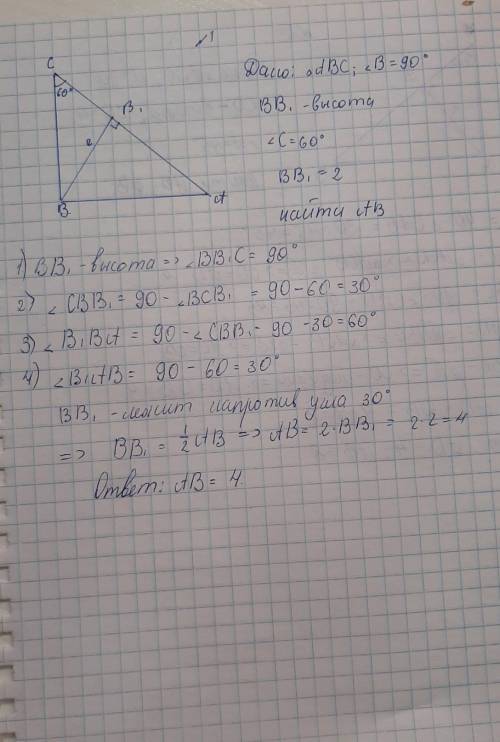 1
C
60°
B₁
2
B
A
Дано: △ABC; ∠B=90°
BB₁ - высота
∠C=60°
BB₁ = 2
найти AB
1) BB₁ - высота => ∠BB₁C = 90°
2) ∠CBB₁ = 90 - ∠BCB₁ = 90-60 = 30°
3) ∠B₁BA = 90 - ∠CBB₁ - 90 - 30 = 60°
4) ∠B₁AB = 90 - 60 = 30°
BB₁ - лежит напротив угла 30°
=> BB₁ = 1/2 AB => AB = 2·BB₁ = 2·2 = 4
Ответ: AB = 4